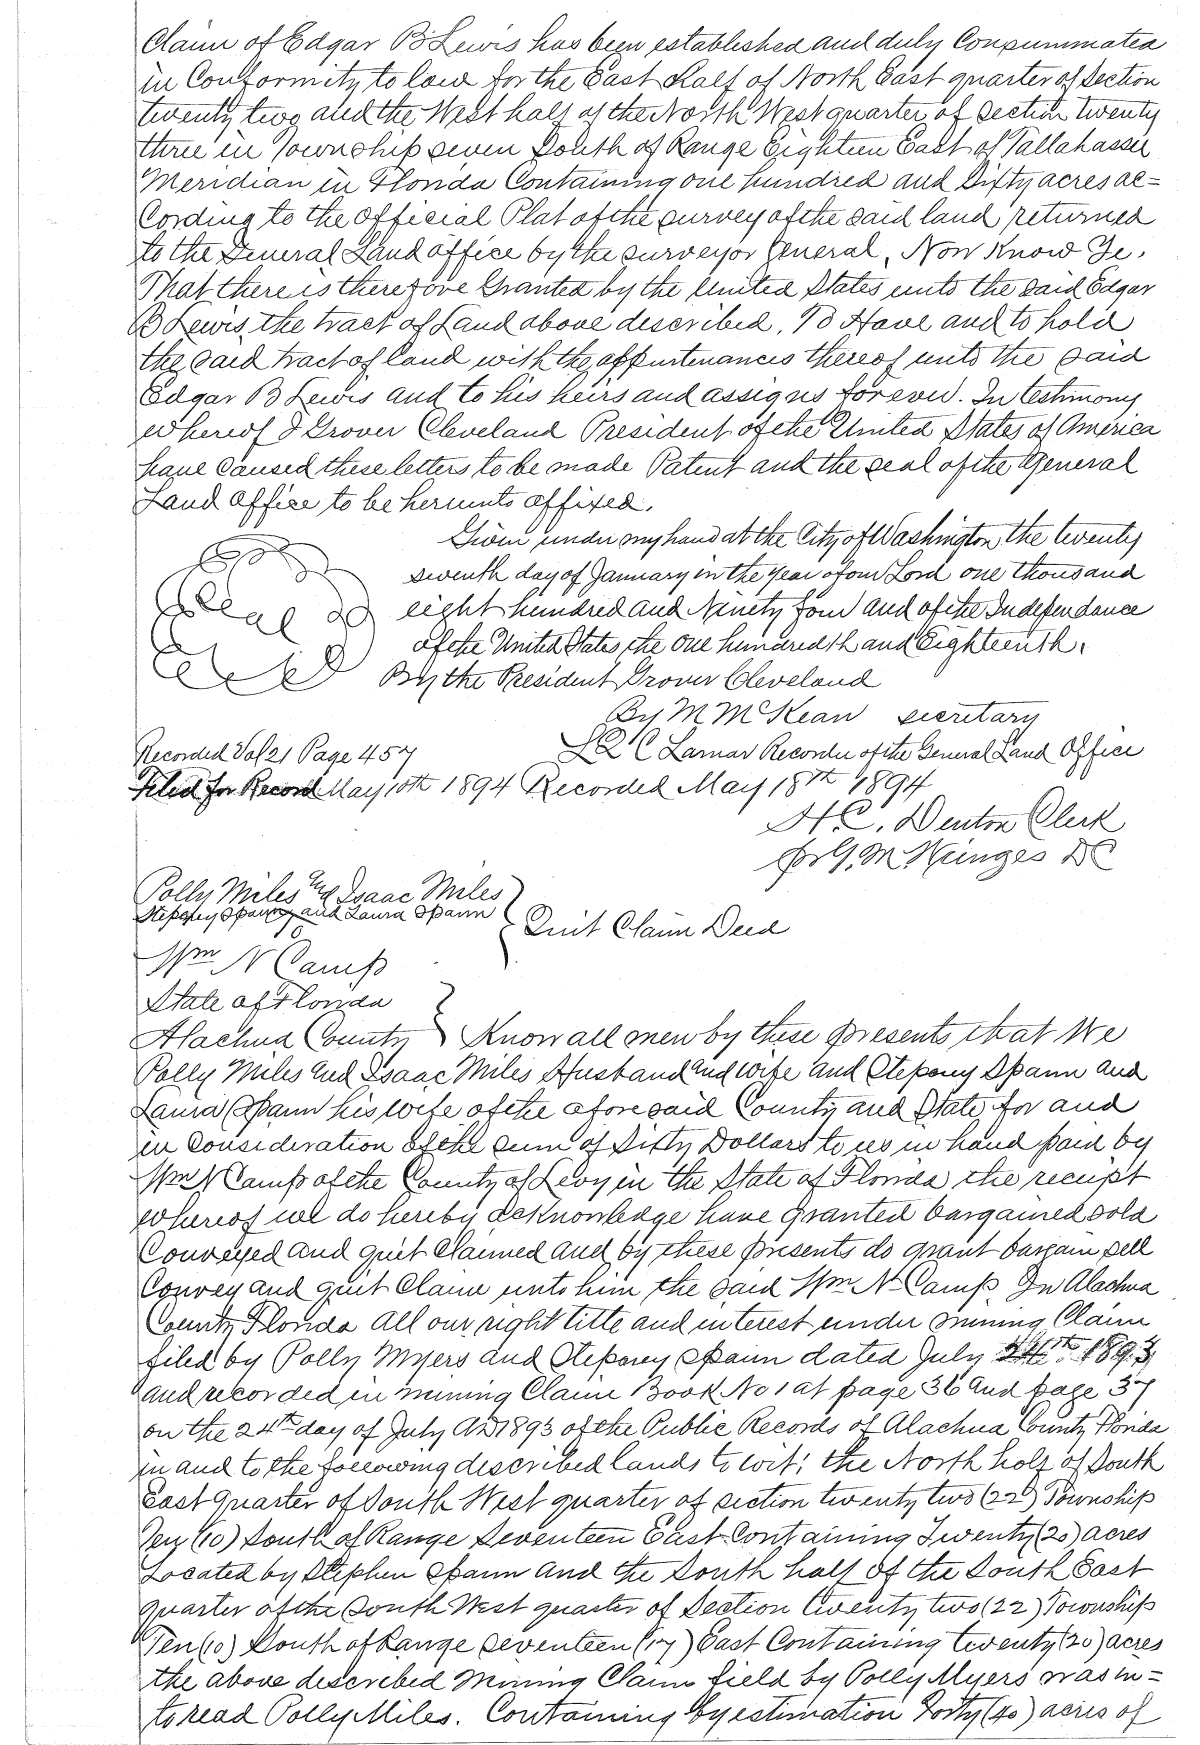 Claim of Edgar B Lewis has been established and duly Consummated
in Conformity to law for the East Half of North East quarter of Section
twenty two and the West half of the North West quarter of section twenty
three in Township seven South of Range Eighteen East of Tallahassee
Meridian in Florida Containing one hundred and Sifty acres ac=
Cording to the official Plat of the survey of the said land returned
to the General Land office by the surveyor General, Now Know Ye,
That there is therefore Granted by the United States unto the said Edgar
B Lewis the tract of Land above described, To Have and to hold
the said tract of land with the appurtenances thereof unto the said
Edgar B Lewis and to his heirs and assigns forever. In testimony
whereof I Grover Cleveland President of the United States of America
have caused these letters to be made Patent and the seal of the General
Land office to be herunto affixed.
Given under my hand at the City of Washington the twenty
seventh day of January in the year of our Lord one thousand
eight hundred and Ninety four and of the Independance
of the United States the one hundredth and Eighteenth.
Seal
By the President Grover Cleveland
By M McKean secretary
Recorded Vol 21 Page 457
L Q C Lamar Recorder of the General Land Office
Filed for Record May 10th 1894 Recorded May 18th 1894
H.C. Denton Clerk
pr G. M DC
Polly Miles and Isaac Miles
Stepney Spann and Laura Spann
to
Quit Claim Deed
Wm N Camp
State of Florida
Alachua County Know all men by these presents that We
Polly Miles and Isaac Miles Husband and wife and Stepney Spann and
Laura Spann his wife of the aforesaid County and State for and
in Consideration of the sum of Sifty Dollars to us in hand paid by
Wm N Camp of the County of Levy in the State of Florida the receipt
whereof we do hereby acknowledge have granted bargained sold
Conveyed and quit Claimed and by these presents do grant bargain sell
Convey and quit Claim unto him the said Wm N Camp In Alachua
County Florida all our right title and interest under mining Claim
filed by Polly Myers and Stepney Spann dated July 24th 1893
and recorded in mining Claim Book No 1 at page 36 and page 37
on the 24th day of July AD 1893 of the Public Records of Alachua County Florida
in and to the following described lands to wit: the North half of South
East Quarter of South West quarter of section twenty two (22) Township
Ten (10) South of Range Seventeen East Containing Twenty (20) acres
Located by Stephen Spann and the South half of the South East
quarter of the South West quarter of Section twenty two (22) Township
Ten (10) South of Range seventeen (17) East Containing twenty (20) acres
the above described mining Claim field by Polly Myers was in=
to read Polly Miles. Containing by estimation Forty (40) acres of